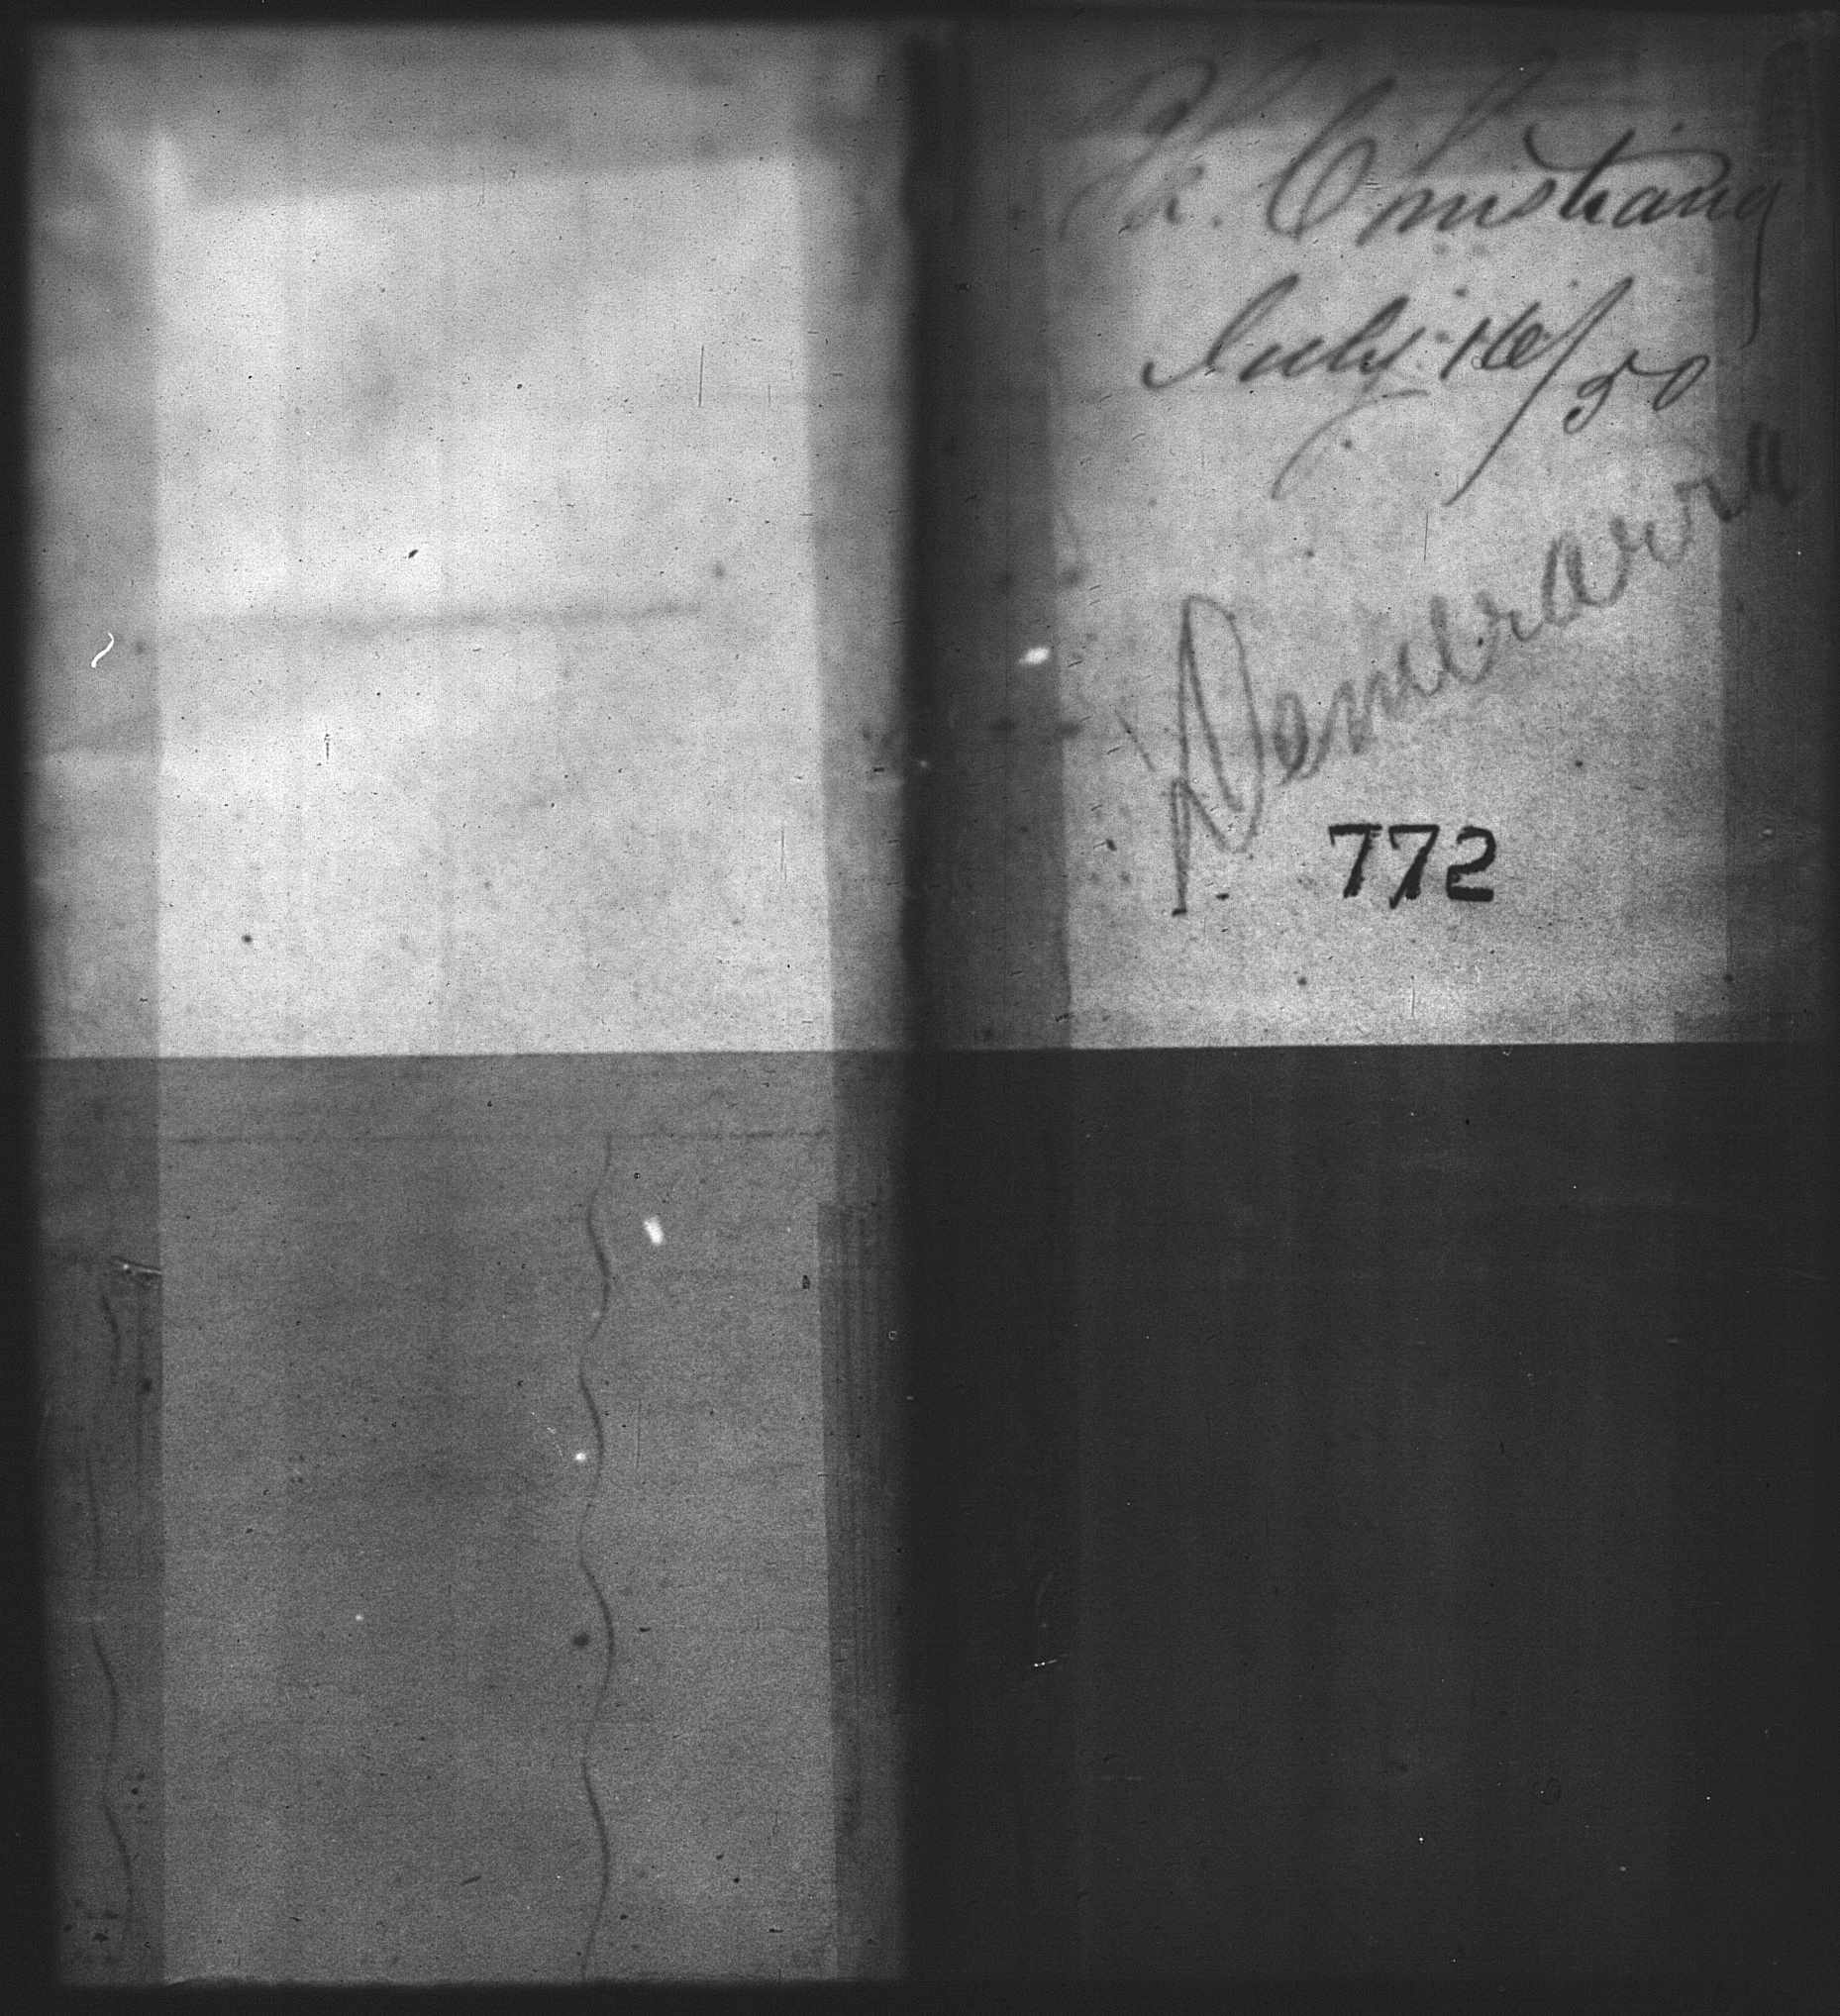 Armstrong
July 16/50
Demerara
772